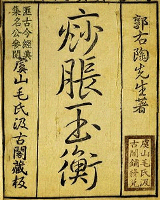 郭右陶先生著
痧脹玉衡
匯古今經典
集名公參閱
虞山毛氏汲古閣藏板
虞山毛氏汲
古閣